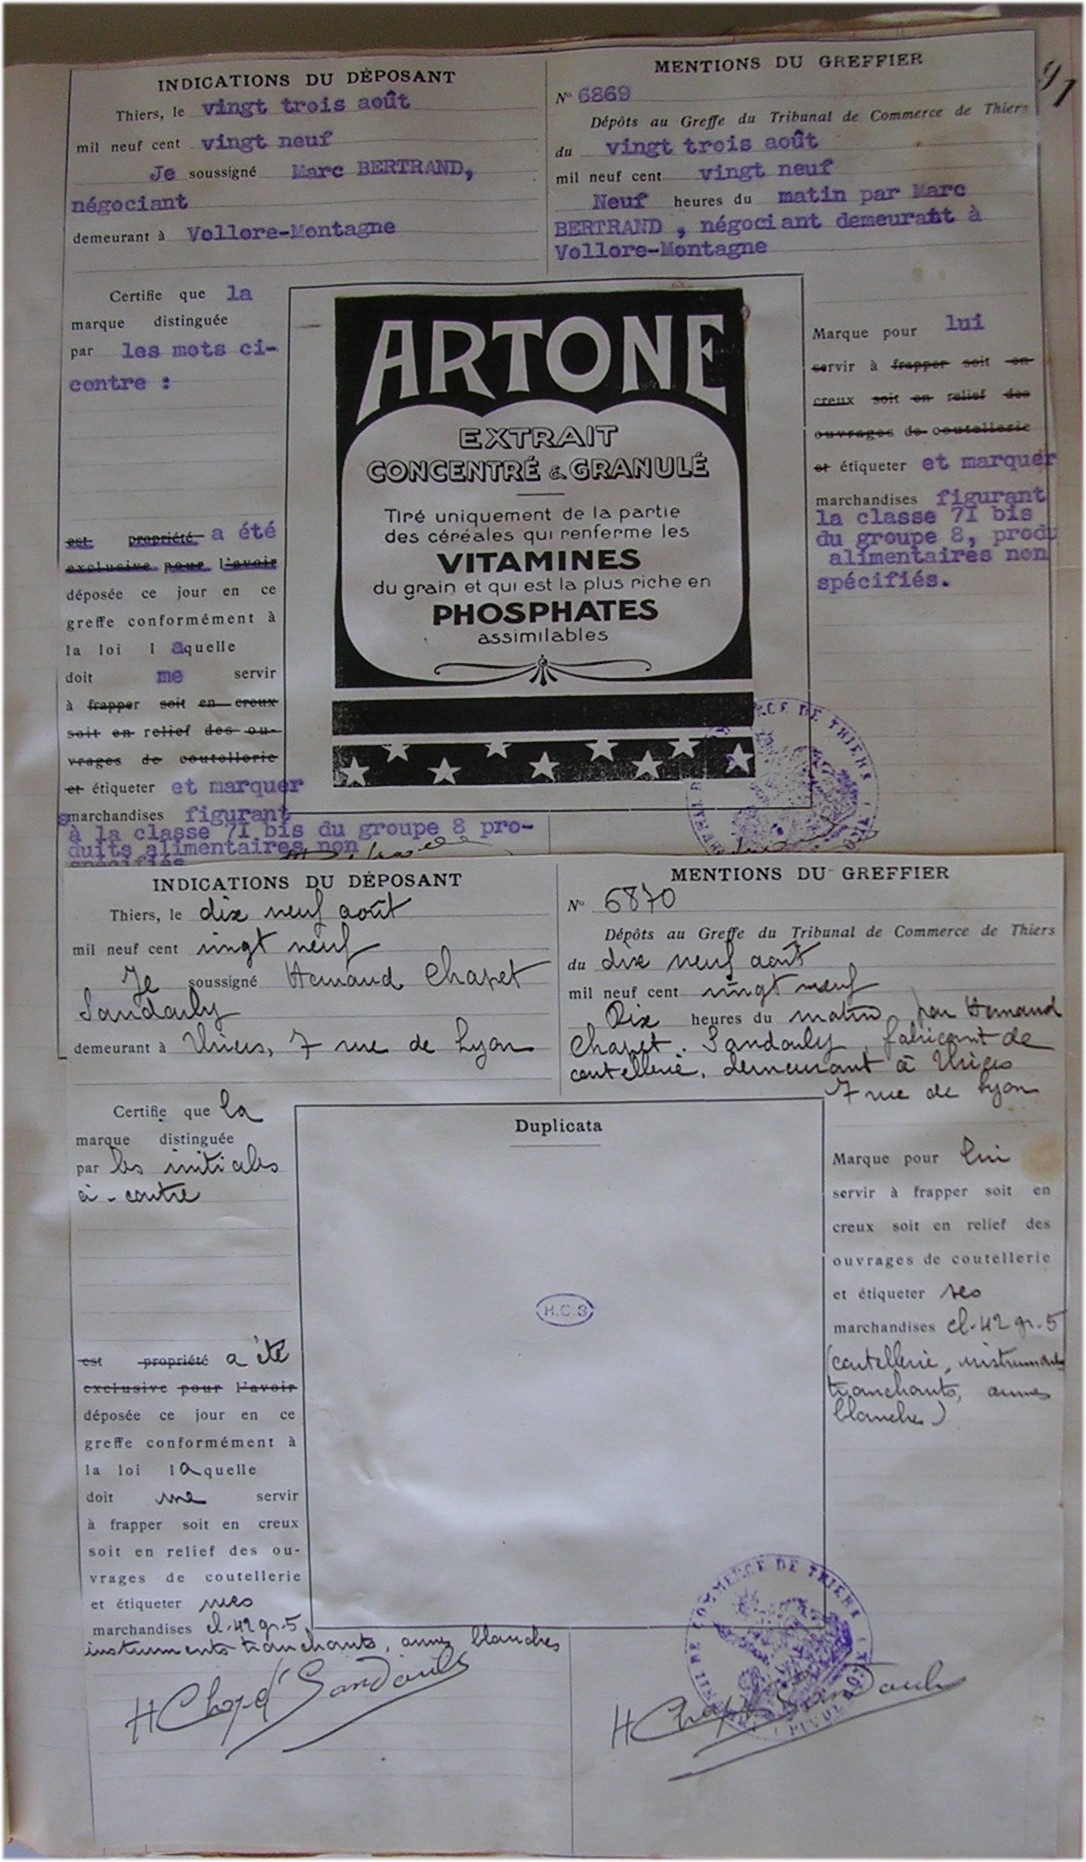 91
INDICATIONS DU DÉPOSANT
Thiers, le vingt trois août
mil neuf cent vingt neuf
Je soussigné Marc BERTRAND,
négociant
demeurant à Vollore-Montagne
MENTIONS DU GREFFIER
N° 6869
Dépôts au Greffe du Tribunal de Commerce de Thiers
du vingt trois août
mil neuf cent vingt neuf
Neuf heures du matin par Marc
BERTRAND , négociant demeurant à
Vollore-Montagne
Certifie que la
marque distinguée
par les mots ci-
contre :
est propriété a été
exclusive pour l'avoir
déposée ce jour en ce
greffe conformément à
la loi laquelle
doit me servir
à frapper soit en creux
soit en relief des ou-
vrages de coutellerie
et étiqueter et marquer
marchandises figurant
à la classe 7I bis du groupe 8 pro-
duits alimentaires non
spécifiés
ARTONE
EXTRAIT
CONCENTRÉ & GRANULÉ
Tiré uniquement de la partie
des céréales qui renferme les
VITAMINES
du grain et qui est la plus riche en
PHOSPHATES
assimilables
Marque pour lui
servir à frapper soit en
creux soit en relief des
ouvrages de coutellerie
et étiqueter et marquer
marchandises figurant
la classe 7I bis
du groupe 8, produ
alimentaires non
spécifiés.
INDICATIONS DU DÉPOSANT
Thiers, le dix neuf août
mil neuf cent vingt neuf
Je soussigné Hemaud Chapet
Sandouly
demeurant à Thiers, 7 rue de Lyon
MENTIONS DU GREFFIER
N° 6870
Dépôts au Greffe du Tribunal de Commerce de Thiers
du dix neuf août
mil neuf cent vingt neuf
Dix heures du matin par Hemaud
Chapet. Sandouly, fabricant de
coutellerie, demeurant à Thiers
7 rue de Lyon
Certifie que la
marque distinguée
par les initiales
ci-contre
est propriété a été
exclusive pour l'avoir
déposée ce jour en ce
greffe conformément à
la loi laquelle
doit me servir
à frapper soit en creux
soit en relief des ou-
vrages de coutellerie
et étiqueter mes
marchandises cl.42 gr.5
instruments tranchants, armes blanches
Duplicata
H.C.S
Marque pour lui
servir à frapper soit en
creux soit en relief des
ouvrages de coutellerie
et étiqueter ses
marchandises cl.42 gr.5
(coutellerie, instruments
tranchants, armes
blanches)
COMMERCE DE THIERS
H Chapet Sandouly
H Chapet Sandouly